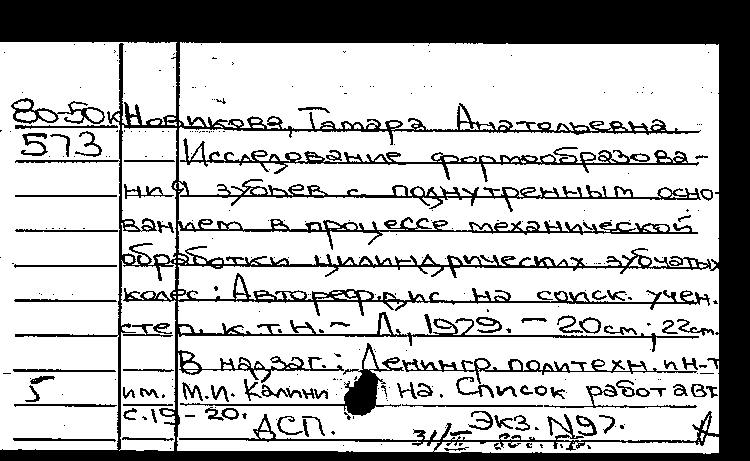 80-50к Новикова, Тамара Анатольевна.
573 Исследование формообразова-
ния зубьев с поднутренным осно-
ванием в процессе механической
обработки цилиндрических зубчатых
колес: Автореф. дис. на соиск. учен.
степ. к.т.н. - Л., 1979. - 20 ст.; 22 см.
В надзаг.: Ленингр. политехн. ин-т
5 им. М.И. Калини на. Список работ авт
с. 19-20.
ДСП. Экз. N97.
31/III-80г.